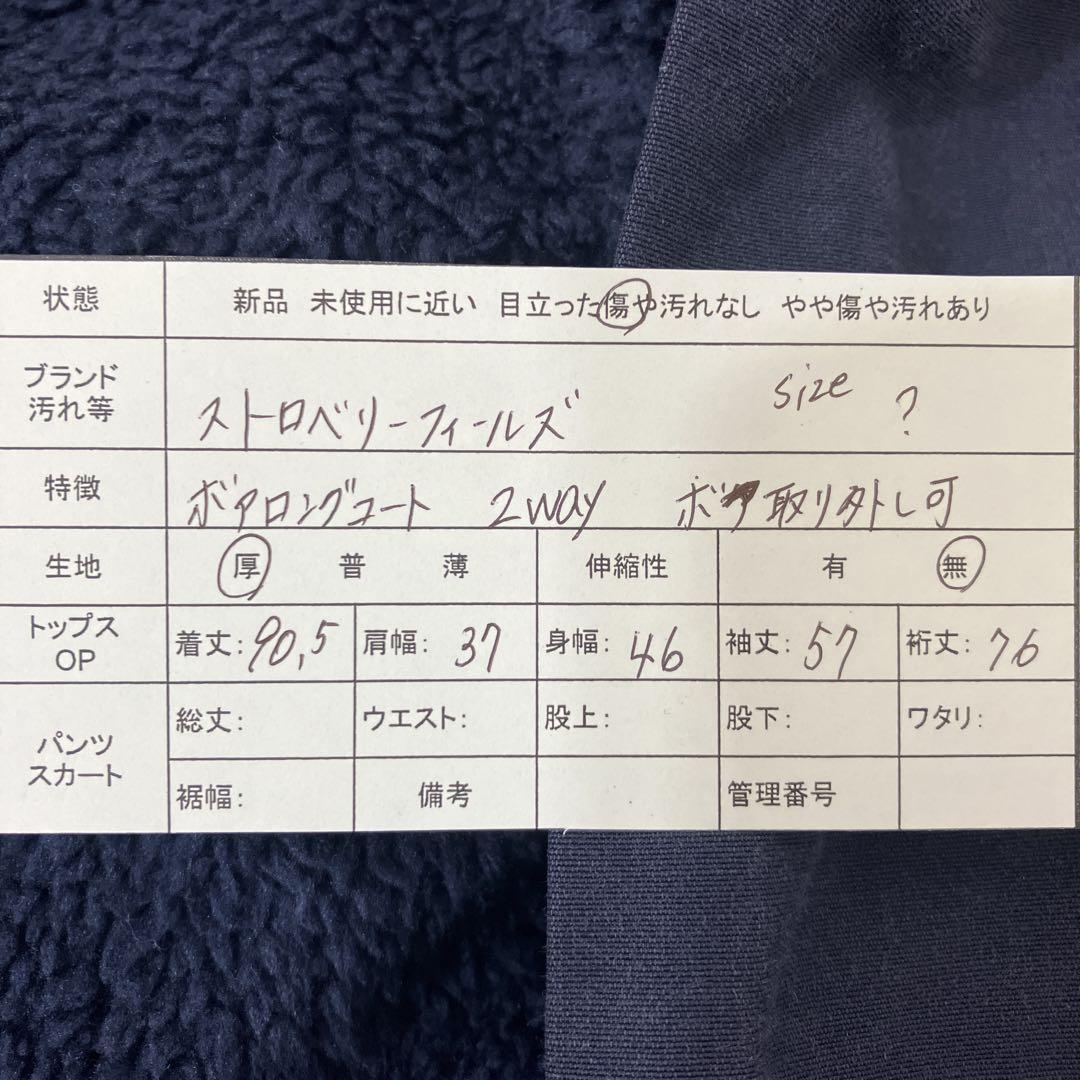 状態 新品 未使用に近い 目立った傷や汚れなし やや傷や汚れあり
ブランド
汚れ等 ストロベリーフィールズ size ?
特徴 ボアロングコート 2way ボア取り外し可
生地 厚 普 薄 伸縮性 有 無
トップス
OP 着丈:90,5 肩幅: 37 身幅: 46 袖丈: 57 裄丈: 76
パンツ
スカート
総丈: ウエスト: 股上: 股下: ワタリ:
裾幅: 備考 管理番号